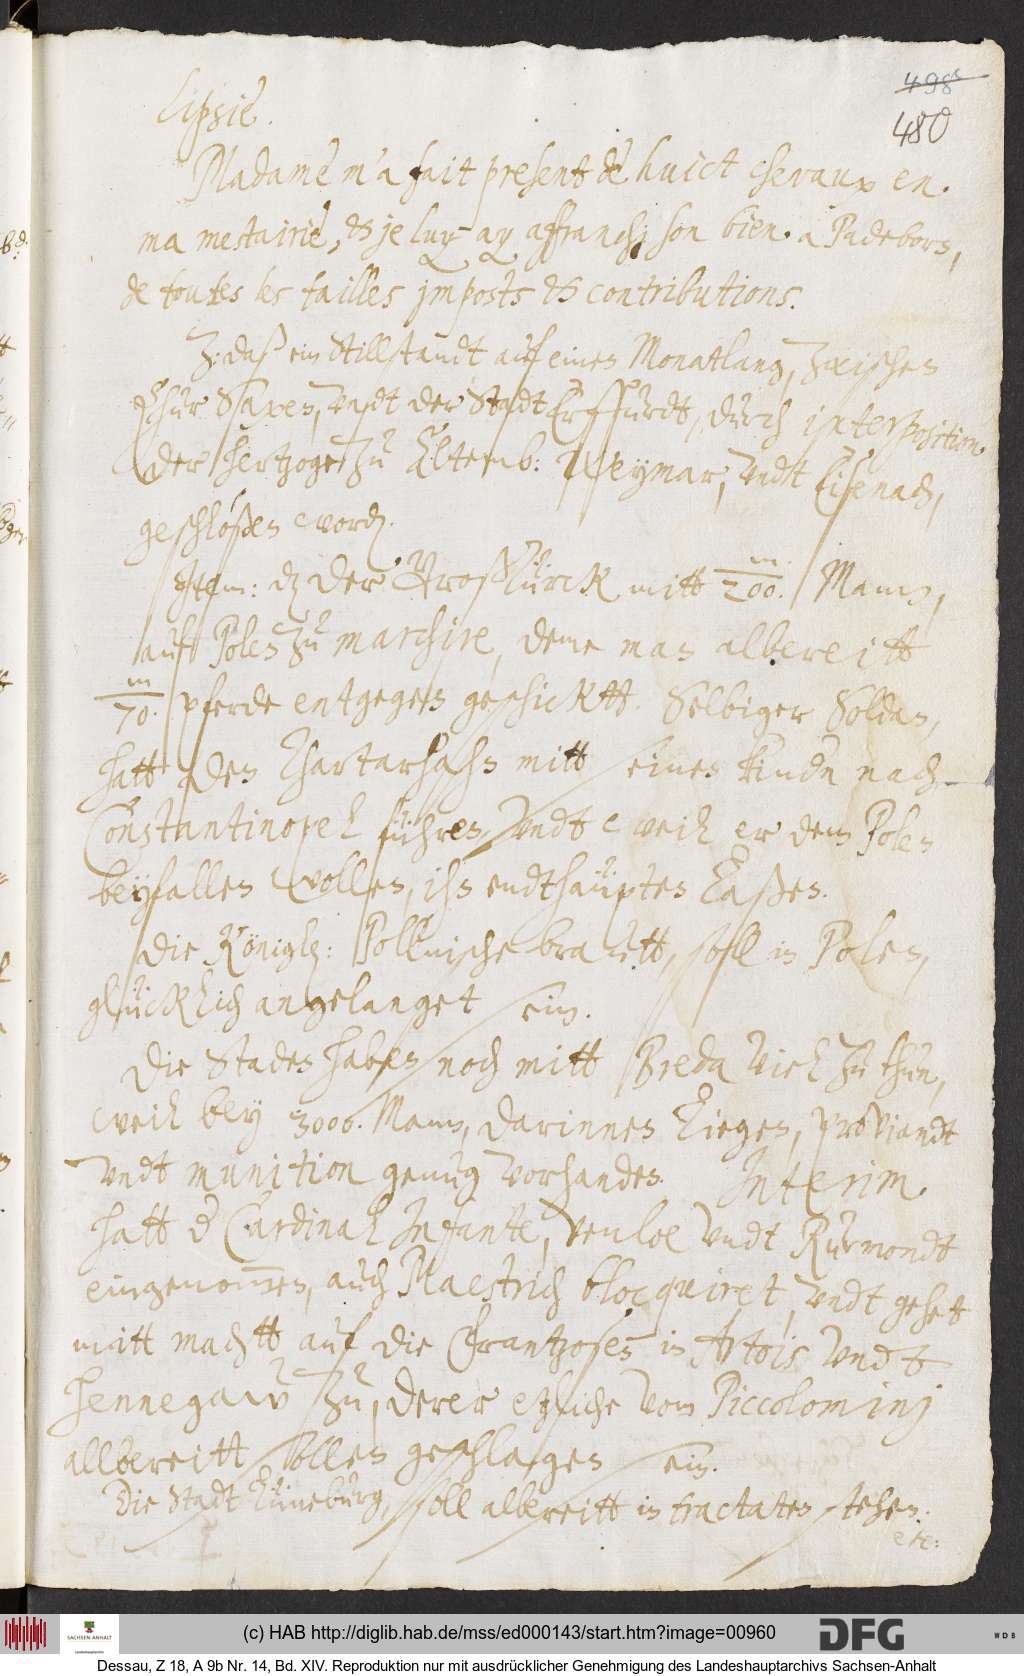 498
480
Lipsie.
Madame m'a fait present de huict chevaux en
ma mestairie, et je luy ay affranchj son bien a Padeborn,
de toutes les tailles jmposts et contributions.
Z: daß ein Stillstandt auf einen Monatlang, zwischen
Chur Saxen, vndt der Stadt Erffurdt, durch interposition
der hertzogen zu Altemb: Weymar, vndt Eisenach,
geschloßen word.
Jtem: dz der GroßTürck mitt 200. Mann,
auf Polen zu marchire, deme man albereitt
70. pferde entgegen geschicktt. Selbiger Soldan,
hatt den Thartarhahn mitt seinen kindn nach
Constantinopel führen, vndt weil er dem Polen
beyfallen wollen, ihn endthaupten laßen.
Die Königl: Pollnische brautt, soll in Polen,
glücklich angelanget sein.
Die Staden haben noch mitt Breda viel zu thun,
weil bey 3000. Mann, darinnen liegen, proviandt
vndt munition genug vorhanden. Interim
hatt der Cardinal Infante, Venloe vndt Rurmondt
eingenommen, auch Maestrich blocquiret, vndt gehet
mitt machtt auf die Frantzosen in Artois vndt
Hennegaw zu, derer etzliche vom Piccolominj
allbereitt sollen geschlagen sein.
Die Stadt Lüneburg, soll albereitt in tractaten stehen.
etc:
(c) HAB http://diglib.hab.de/mss/ed000143/start.htm?image=00960
SACHSEN-ANHALT
DFG
WDB
Dessau, Z 18, A 9b Nr. 14, Bd. XIV. Reproduktion nur mit ausdrücklicher Genehmigung des Landeshauptarchivs Sachsen-Anhalt